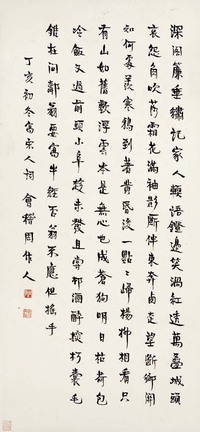 深閣簾垂繡記家人輭語鐙邊笑渦紅透萬疊城頭
哀怨角吹落霜花滿袖影廝伴東奔西走望斷鄉關
知何處羨寒鴉到著黃昏後一點〻歸楊柳相看只
有山如舊歎浮雲本是無心也成蒼狗明日枯荷包
冷飯又過前頭小阜趁未發且嘗邨酒醉探枵囊毛
錐在問鄰翁要寫牛經否翁不應但搖手
丁亥初冬寫宋人詞 會稽周作人